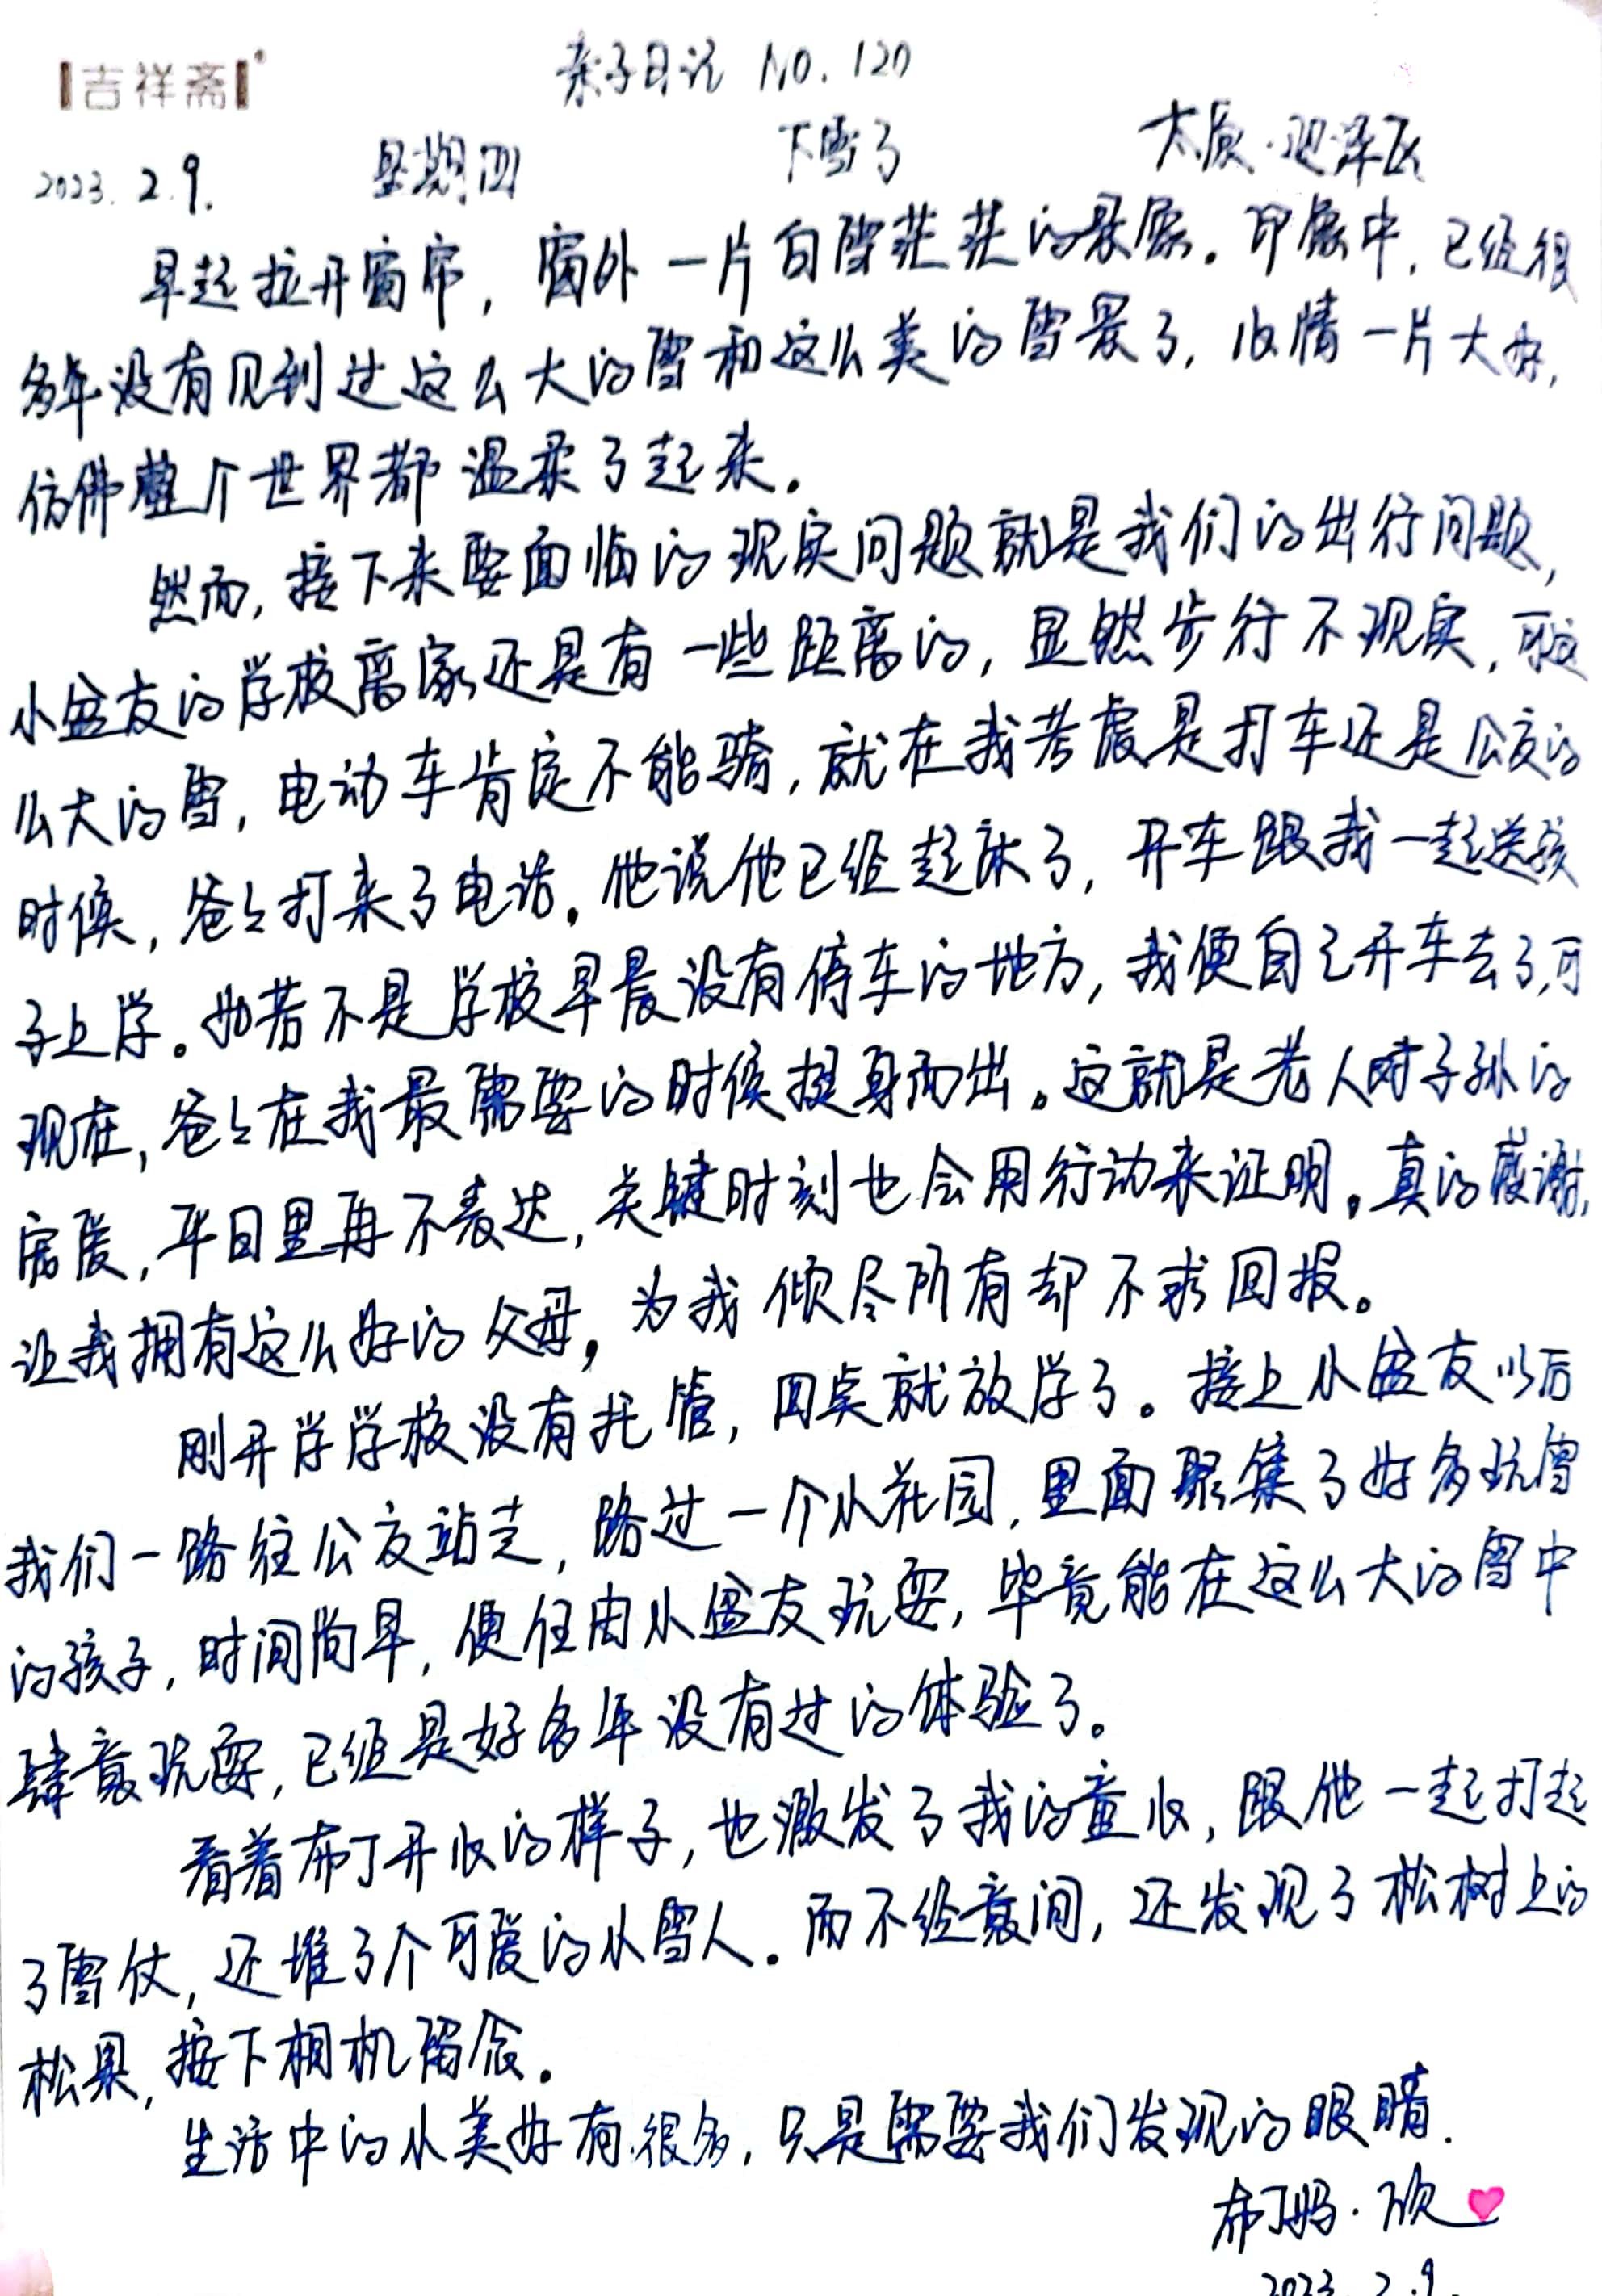 吉祥斋
亲子日记 NO.120
2023.2.9. 星期四 下雪了 太原·迎泽区
早起拉开窗帘，窗外一片白雪茫茫的景象。印象中，已经很
多年没有见到过这么大的雪和这么美的雪景了，心情一片大好，
仿佛整个世界都温柔了起来。
然而，接下来要面临的现实问题就是我们的出行问题，
小盆友的学校离家还是有一些距离的，显然步行不现实，可这
么大的雪，电动车肯定不能骑，就在我考虑是打车还是公交的
时候，爸爸打来了电话。他说他已经起床了，开车跟我一起送孩
子上学。如若不是学校早晨没有停车的地方，我便自己开车去了，可
现在，爸爸在我最需要的时候挺身而出。这就是老人对子孙的
宠爱，平日里再不表达，关键时刻也会用行动来证明。真的感谢，
让我拥有这么好的父母，为我倾尽所有却不求回报。
刚开学学校没有托管，四点就放学了。接上小盆友以后
我们一路往公交站走，路过一个小花园，里面聚集了好多玩雪
的孩子，时间尚早，便任由小盆友玩耍，毕竟能在这么大的雪中
肆意玩耍，已经是好多年没有过的体验了。
看着布丁开心的样子，也激发了我的童心，跟他一起打起
了雪仗，还堆了个可爱的小雪人。而不经意间，还发现了松树上的
松果，按下相机留念。
生活中的小美好有很多，只是需要我们发现的眼睛.
布丁妈·欣
2023.2.9.